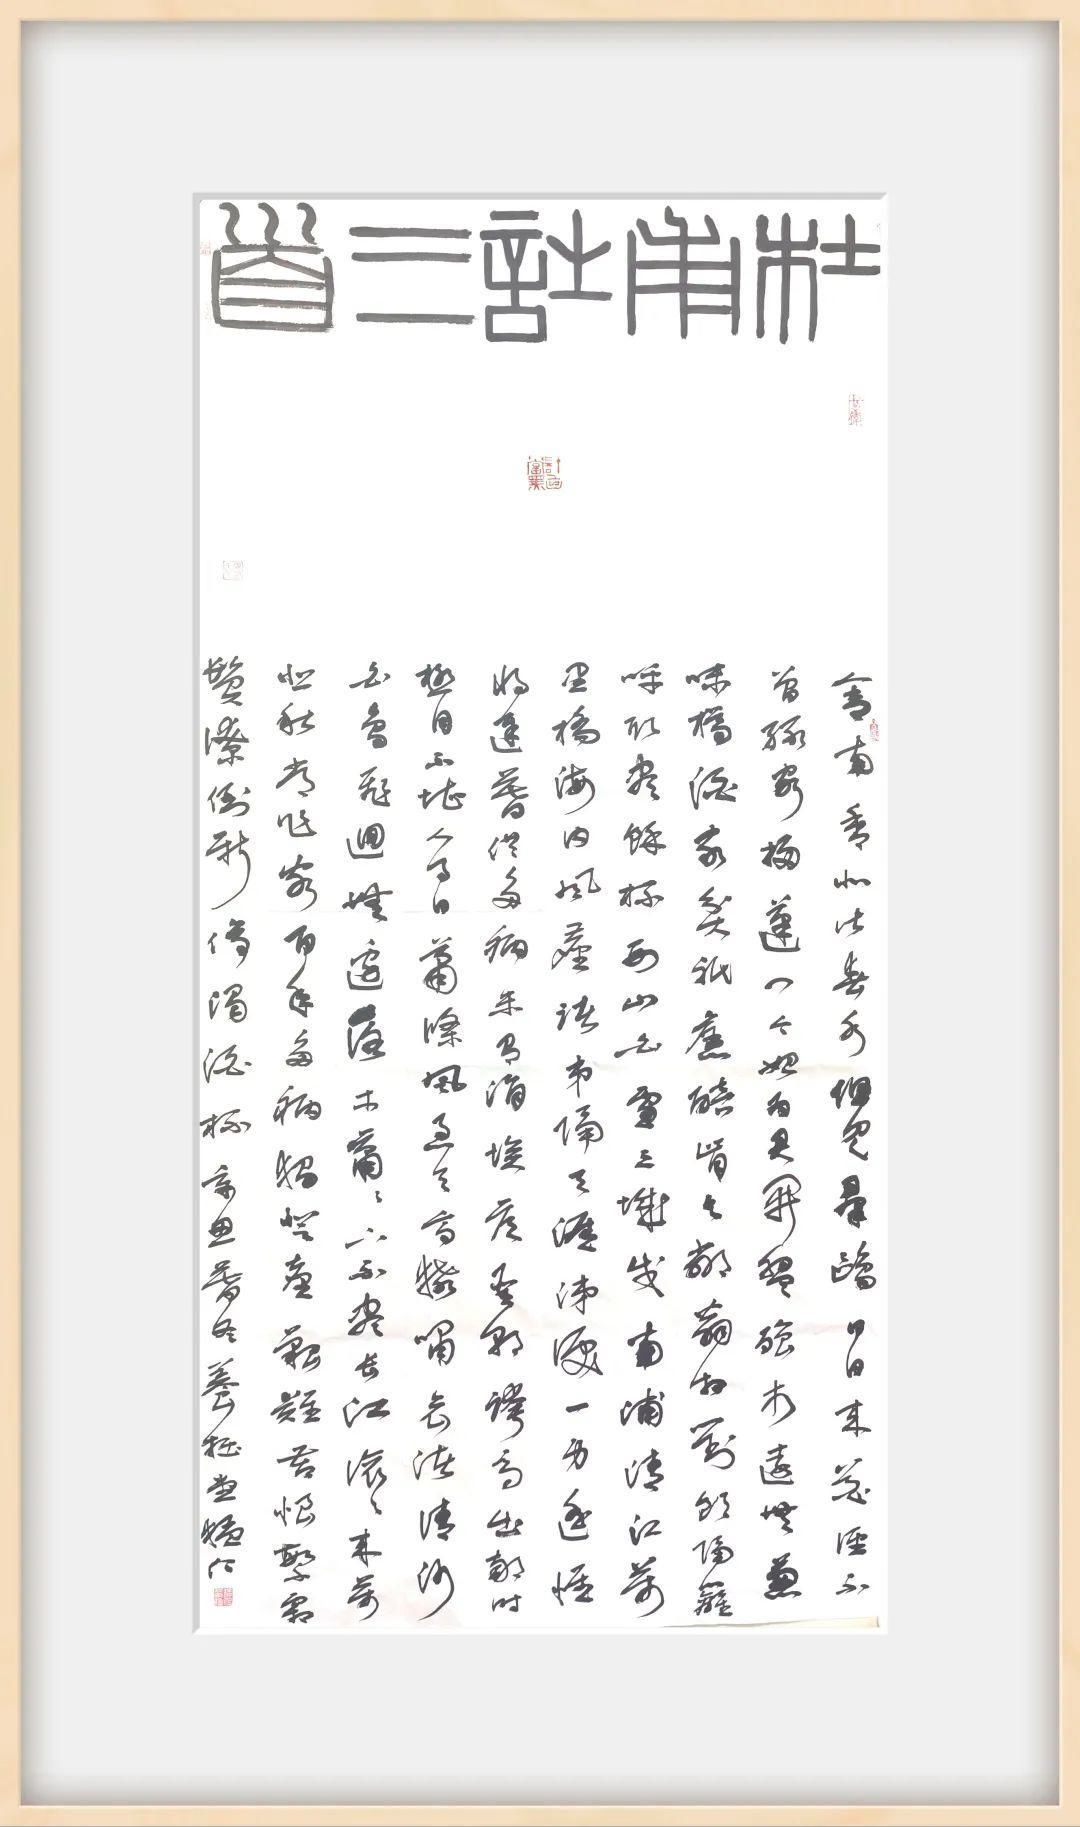 杜甫詩三首
舍南舍北皆春水但見群鷗日日來花徑不
曾緣客掃蓬門今始為君開盤飧市遠無兼
味樽酒家貧祇舊醅肯與鄰翁相對飲隔籬
呼取盡餘杯西山白雪三城戍南浦清江萬
里橋海內風塵諸弟隔天涯涕淚一身遙惟
將遲暮供多病未有涓埃答聖朝跨馬出郊時
極目不堪人事日蕭條風急天高猿嘯哀渚清沙
白鳥飛迴無邊落木蕭蕭下不盡長江滾滾來萬
悲秋常作客百年多病獨登臺艱難苦恨繁霜
鬢潦倒新停濁酒杯辛丑暮冬養拙堂